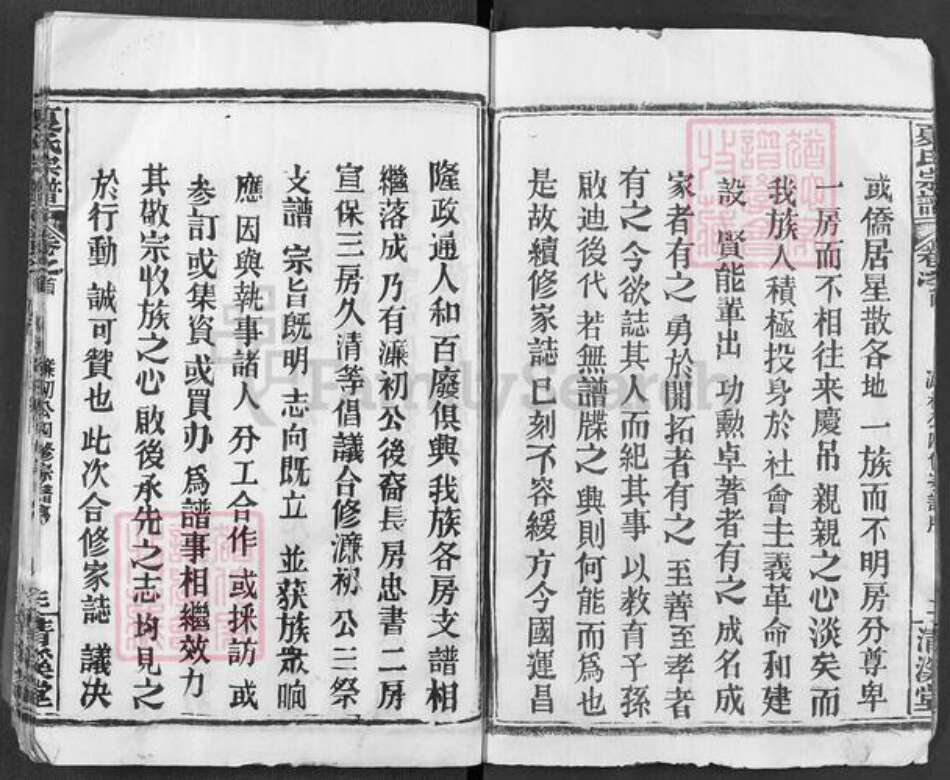 或僑居星散各地一族而不明房分尊卑
一房而不相往来慶吊親親之心淡矣而
我族人積極投身於社會主義革命和建
設賢能輩出功勳卓著者有之成名成
家者有之勇於開拓者有之至善至孝者
有之今欲誌其人而紀其事以教育子孫
啟迪後代若無譜牒之興則何能而為也
是故續修家誌已刻不容緩方今國運昌
隆政通人和百廢俱興我族各房支譜相
繼落成乃有濂初公後裔長房忠書二房
宣保三房久清等倡議合修濂初公三祭
支譜宗旨既明志向既立並获族眾响
應因與執事諸人分工合作或採訪或
參訂或集資或買办為譜事相繼效力
其敬宗收族之心啟後承先之志均見之
於行動誠可贊也此次合修家誌議决
夏氏宗譜
卷之首
濂初公四修宗譜序
FamilySearch